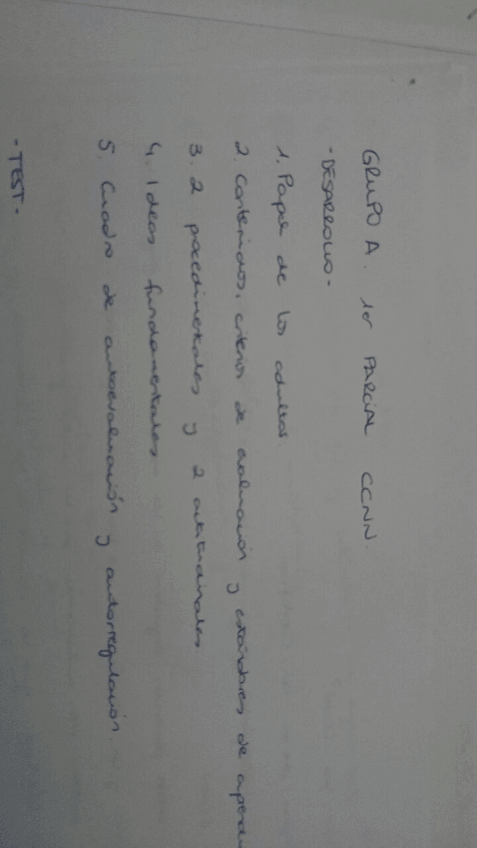 GRUPO A. 1er PARCIAL CCNN.
- DESARROLLO -
1. Papel de los adultos.
2. Contenidos, criterios de evaluación y estándares de
3. 2 procedimentales y 2 actitudinales
4. Ideas fundamentales
5. Cuadro de autoevaluación y autorregulación.
- TEST -